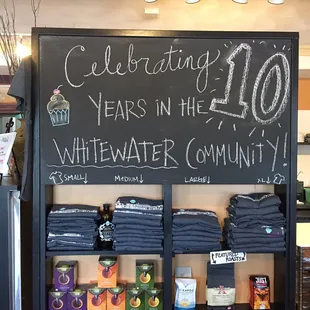 Celebrating 10
Years in the
Whitewater Community!
Small Medium Large XL
Featured
Roasts